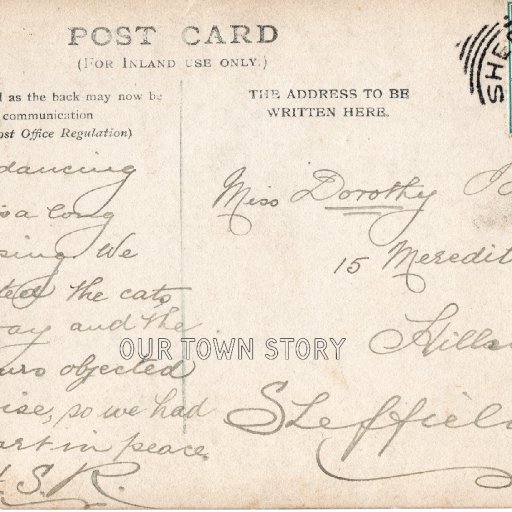 POST CARD
(FOR INLAND USE ONLY.)
d as the back may now be
communication
ost Office Regulation)
THE ADDRESS TO BE
WRITTEN HERE.
SHE
dancing
is a long
sing. We
ted the cats
ay and the
urs objected
ise, so we had
art in peace.
S. R.
Miss Dorothy
15 Meredit
Hills
Sheffield
OUR TOWN STORY